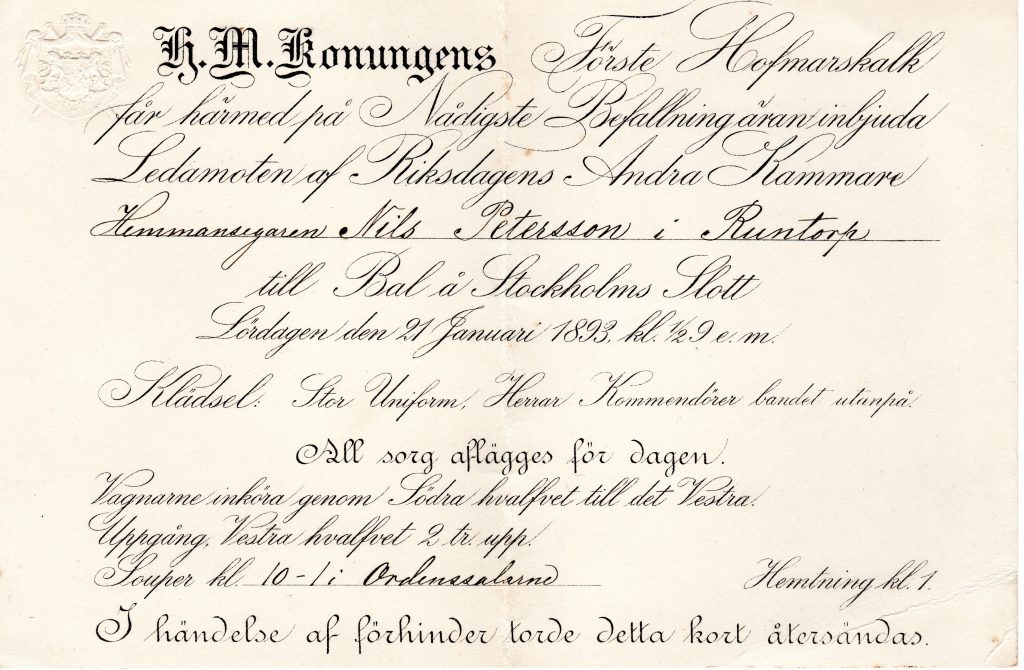 H. M. Konungens Förste Hofmarskalk
får härmed på Nådigste Befallning äran inbjuda
Ledamoten af Riksdagens Andra Kammare
Hemmansegaren Nils Petersson i Runtorp
till Bal å Stockholms Slott
Lördagen den 21 Januari 1893. kl. ½ 9 e. m.
Klädsel: Stor Uniform, Herrar Kommendörer bandet utanpå.
All sorg aflägges för dagen.
Vagnarne inköra genom Södra hvalfvet till det Vestra.
Uppgång, Vestra hvalfvet 2 tr. upp.
Souper kl. 10-1 i Ordenssalarne Hemtning kl. 1.
I händelse af förhinder torde detta kort återsändas.